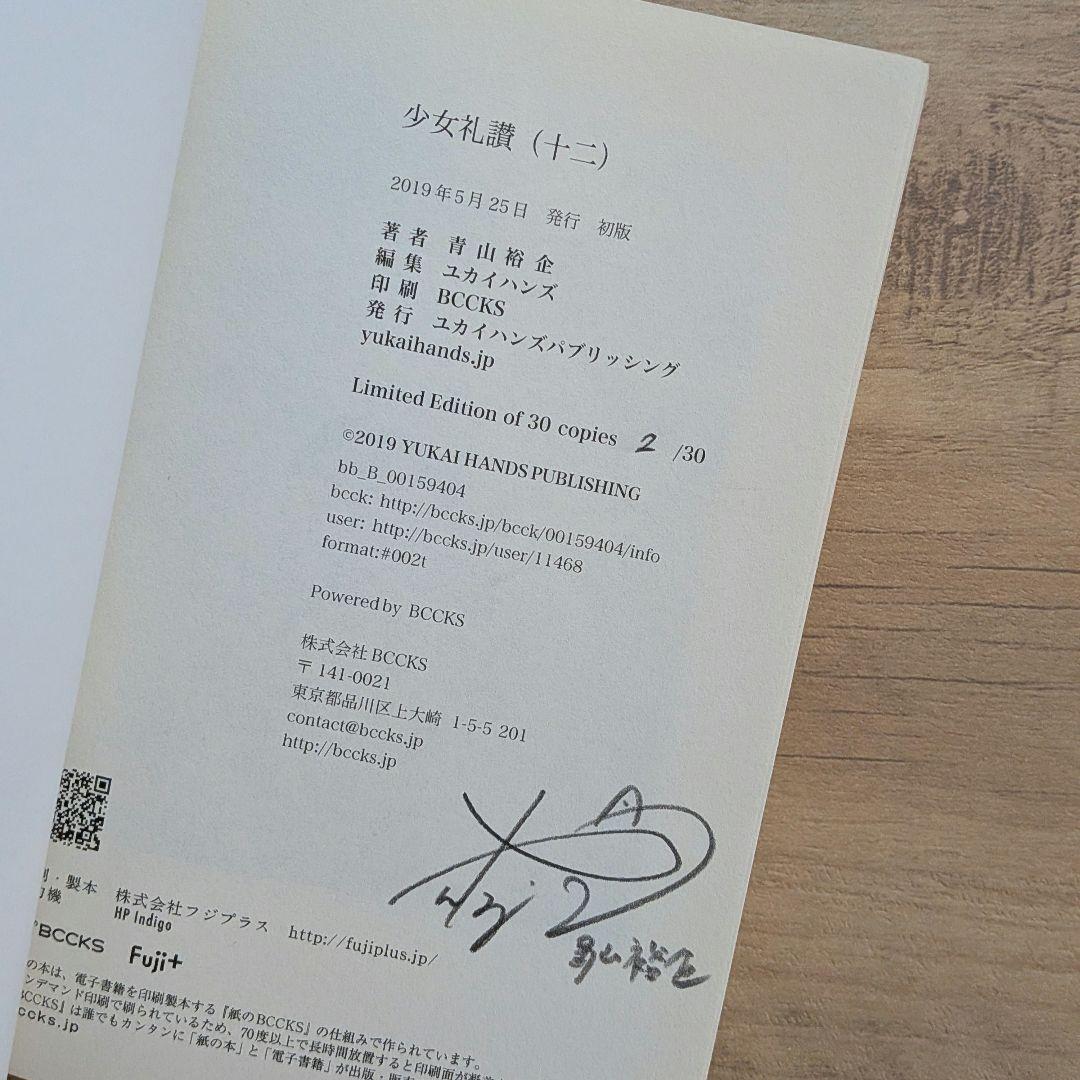 少女礼讃（十二）
2019年5月25日　発行　初版
著者　青山裕企
編集　ユカイハンズ
印刷　BCCKS
発行　ユカイハンズパブリッシング
yukaihands.jp
Limited Edition of 30 copies 2 /30
©2019 YUKAI HANDS PUBLISHING
bb_B_00159404
bcck: http://bccks.jp/bcck/00159404/info
user: http://bccks.jp/user/11468
format:#002t
Powered by BCCKS
株式会社BCCKS
〒141-0021
東京都品川区上大崎 1-5-5 201
contact@bccks.jp
http://bccks.jp
青山裕企
・製本 株式会社フジプラス http://fujiplus.jp/
機 HP Indigo
BCCKS Fuji+
の本は、電子書籍を印刷製本する『紙のBCCKS』の仕組みで作られています。
ンデマンド印刷で刷られているため、70度以上で長時間放置すると印刷面が
BCCKS』は誰でもカンタンに「紙の本」と「電子書籍」が出版・販
ccks.jp